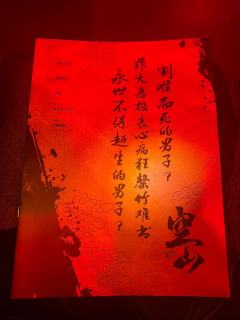 割喉而死的男子？
罪大恶极丧心病狂罄竹难书
永世不得超生的男子？
空山